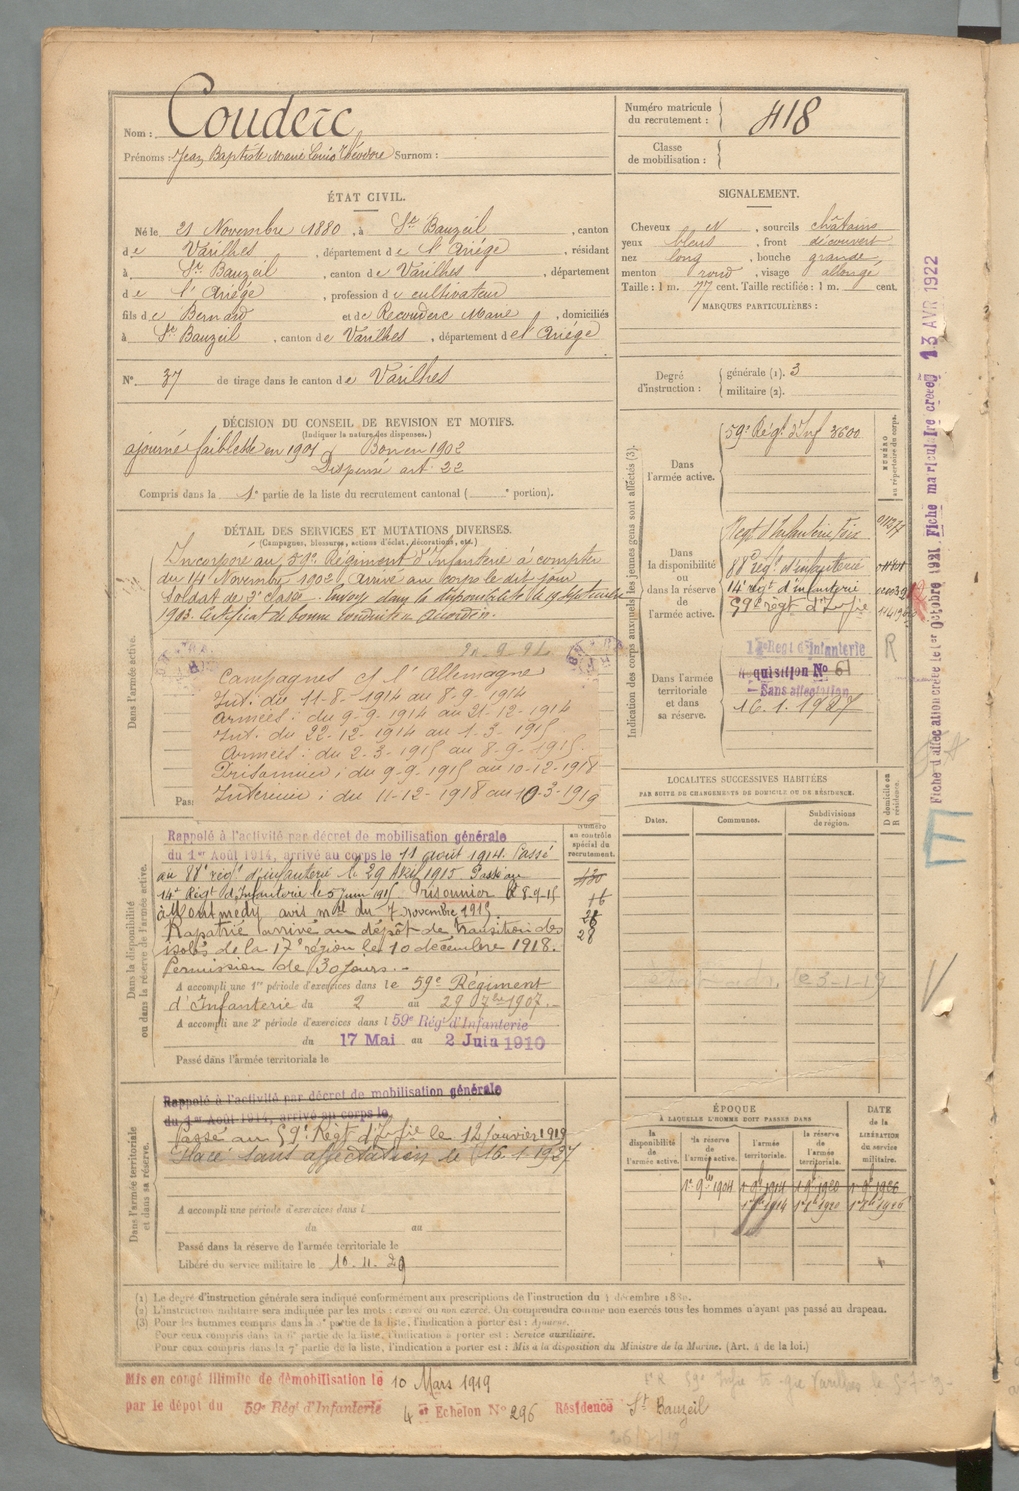 Nom : Couderc
Prénoms : Jean Baptiste Marie Louis Théodore Surnom :
Numéro matricule du recrutement : 418
Classe de mobilisation :
ÉTAT CIVIL.
Né le 21 Novembre 1880, à St Bauzeil, canton
de Varilhes, département de l'Ariége, résidant
à St Bauzeil, canton de Varilhes, département
de l'Ariége, profession de cultivateur
fils de Bernard et de Recouderc Marie, domiciliés
à St Bauzeil, canton de Varilhes, département de l'Ariége
N° 37 de tirage dans le canton de Varilhes
SIGNALEMENT.
Cheveux et, sourcils châtains
yeux bleus, front découvert
nez long, bouche grande,
menton rond, visage allongé
Taille : 1 m. 77 cent. Taille rectifiée : 1 m. cent.
MARQUES PARTICULIÈRES :
Degré d'instruction : générale (1). 3
militaire (2).
DÉCISION DU CONSEIL DE REVISION ET MOTIFS.
(Indiquer la nature des dispenses.)
ajourné faiblesse en 1901 Bon en 1902
Dispensé art. 22
Compris dans la 1e partie de la liste du recrutement cantonal ( e portion).
DÉTAIL DES SERVICES ET MUTATIONS DIVERSES.
(Campagnes, blessures, actions d'éclat, décorations, etc.)
Dans l'armée active.
Incorporé au 59e Régiment d'Infanterie à compter
du 14 Novembre 1902, arrivé au corps le dit jour
soldat de 2e classe. Envoyé dans la disponibilité le 19 septembre
1903. Certificat de bonne conduite Accordé.
Campagnes ct l'Allemagne
Int. du 11-8-1914 au 8-9-1914
Armées : du 9-9-1914 au 21-12-1914
Int. du 22-12-1914 au 1-3-1915
Armées : du 2-3-1915 au 8-9-1915
Prisonnier : du 9-9-1915 au 10-12-1918
Intérieur : du 11-12-1918 au 10-3-1919
Pas
Dans la disponibilité ou dans la réserve de l'armée active.
Rappelé à l'activité par décret de mobilisation générale
du 1er Août 1914, arrivé au corps le 11 août 1914. Passé
au 88e régt d'infanterie le 29 Avril 1915 Passé au
14e Régt d'Infanterie le 5 juin 1915 Prisonnier le 8-9-15
à Montmedy avis mel du 7 novembre 1915
Rapatrié arrivé au dépôt de transition des
isolés de la 17e région le 10 décembre 1918.
Permission de 30 jours.
A accompli une 1re période d'exercices dans le 59e Régiment
d'Infanterie du 2 au 29 7bre 1907.
A accompli une 2e période d'exercices dans l 59e Régt d'Infanterie
du 17 Mai au 2 Juin 1910
Passé dans l'armée territoriale le
Numéro au contrôle spécial du recrutement.
430
16
28
28
Dans l'armée territoriale et dans sa réserve.
Rappelé à l'activité par décret de mobilisation générale
du 1er Août 1914, arrivé au corps le
Passé au 59e Régt d'Infie le 12 janvier 1919
Placé sans affectation le 16-1-1927
A accompli une période d'exercices dans l
du au
Passé dans la réserve de l'armée territoriale le
Libéré du service militaire le 10.11.29
Indication des corps auxquels les jeunes gens sont affectés (3).
NUMÉRO au répertoire du corps.
Dans l'armée active.
59e Régt d'Inf 3600
Dans la disponibilité ou dans la réserve de l'armée active.
Régt d'Infanterie Foix
88e régt d'infanterie
14e régt d'infanterie
59e régt d'Infie
Dans l'armée territoriale et dans sa réserve.
Régt d'Infanterie
quisition N° 61
Sans affectation
16.1.1927
R
LOCALITES SUCCESSIVES HABITÉES
PAR SUITE DE CHANGEMENTS DE DOMICILE OU DE RÉSIDENCE.
Dates. Communes. Subdivisions de région. D domicile ou R résidence.
ÉPOQUE
À LAQUELLE L'HOMME DOIT PASSER DANS
la disponibilité de l'armée active. la réserve de l'armée active. l'armée territoriale. la réserve de l'armée territoriale. DATE de la LIBÉRATION du service militaire.
1er 9bre 1904
Fiche d'affectation créée le 1er Octobre 1921 Fiche matriculaire créée 13 AVR 1922
(1) Le degré d'instruction générale sera indiqué conformément aux prescriptions de l'instruction du 4 décembre 1889.
(2) L'instruction militaire sera indiquée par les mots : exercé ou non exercé. On comprendra comme non exercés tous les hommes n'ayant pas passé au drapeau.
(3) Pour les hommes compris dans la 5e partie de la liste, l'indication à porter est : Ajourné.
Pour ceux compris dans la 6e partie de la liste, l'indication à porter est : Service auxiliaire.
Pour ceux compris dans la 7e partie de la liste, l'indication à porter est : Mis à la disposition du Ministre de la Marine. (Art. 4 de la loi.)
Mis en congé illimité de démobilisation le 10 Mars 1919
par le dépôt du 59e Régt d'Infanterie 4e Echelon N° 296 Résidence St Bauzeil